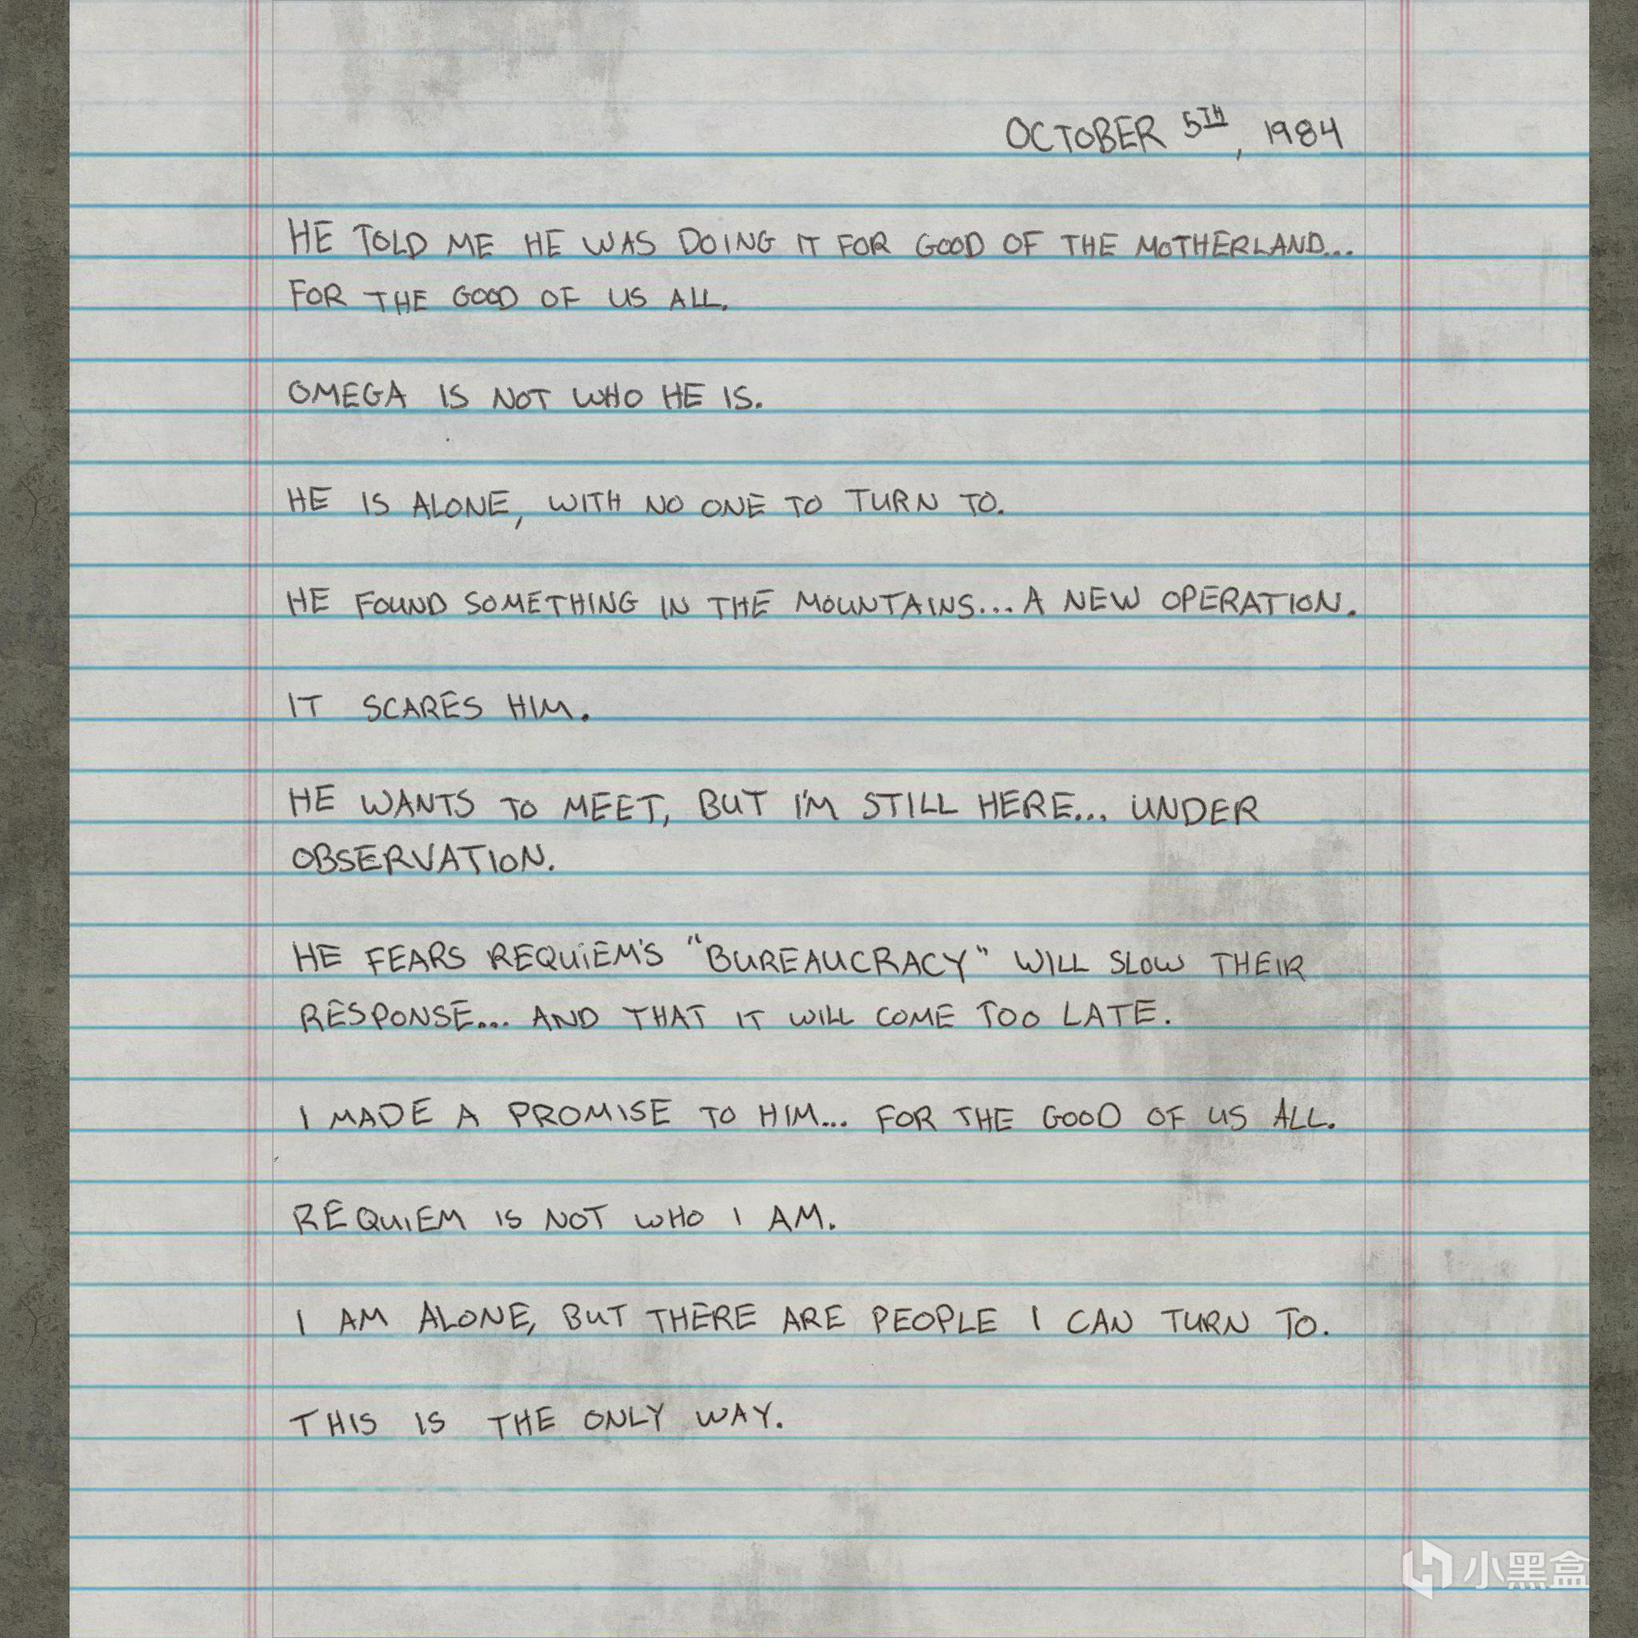 OCTOBER 5TH, 1984
HE TOLD ME HE WAS DOING IT FOR GOOD OF THE MOTHERLAND...
FOR THE GOOD OF US ALL.
OMEGA IS NOT WHO HE IS.
HE IS ALONE, WITH NO ONE TO TURN TO.
HE FOUND SOMETHING IN THE MOUNTAINS... A NEW OPERATION.
IT SCARES HIM.
HE WANTS TO MEET, BUT I'M STILL HERE... UNDER
OBSERVATION.
HE FEARS REQUIEM'S "BUREAUCRACY" WILL SLOW THEIR
RESPONSE... AND THAT IT WILL COME TOO LATE.
I MADE A PROMISE TO HIM... FOR THE GOOD OF US ALL.
REQUIEM IS NOT WHO I AM.
I AM ALONE, BUT THERE ARE PEOPLE I CAN TURN TO.
THIS IS THE ONLY WAY.
小黑盒